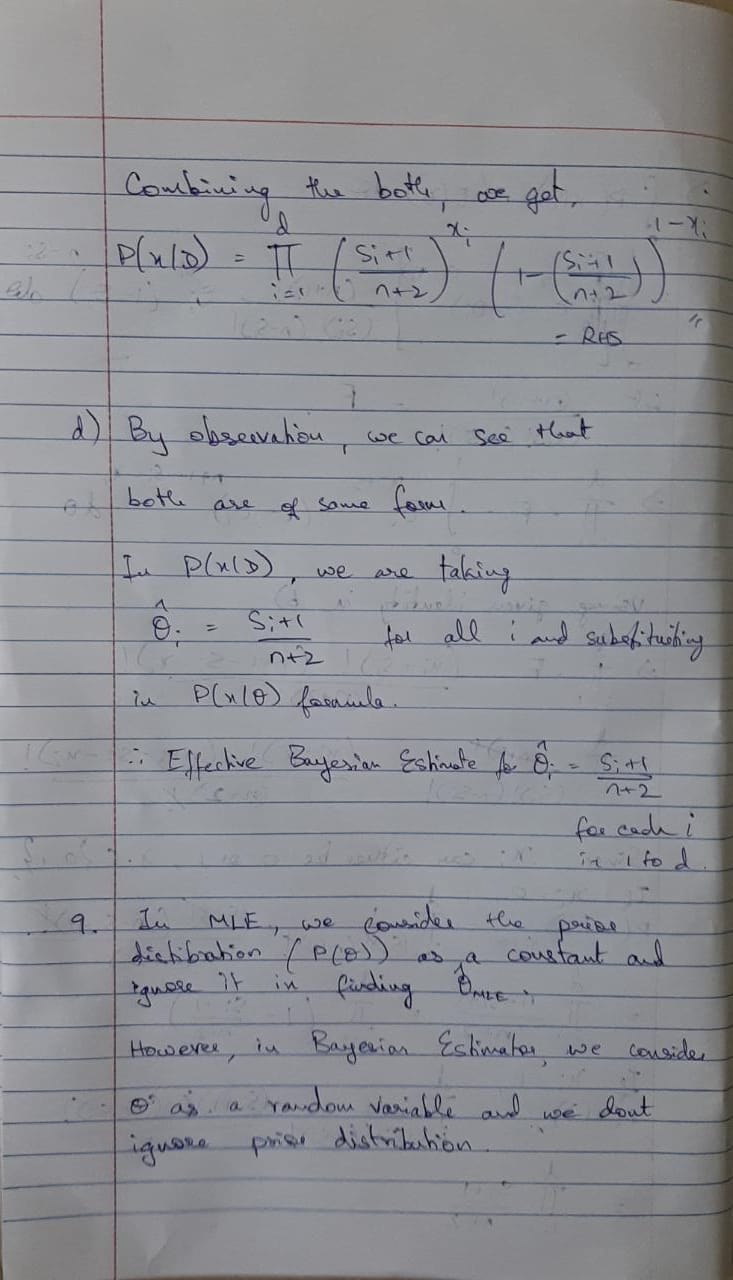 Combining the both, we get,
P(x|D) = d∏i=1 (Si+1/n+2)^xi (1-(Si+1/n+2))^1-xi
= RHS
d) By observation, we can see that
both are of same form.
In P(x|D), we are taking
θ̂i = Si+1/n+2 for all i and substituting
in P(x|θ) formula.
∴ Effective Bayesian Estimate for θ̂i = Si+1/n+2
for each i
i = 1 to d.
9. In MLE, we consider the prior
distibration (P(θ)) as a constant and
ignore it in finding θ̂MLE.
However, in Bayesian Estimator, we consider
θ as a random variable and we dont
ignore prior distribution.